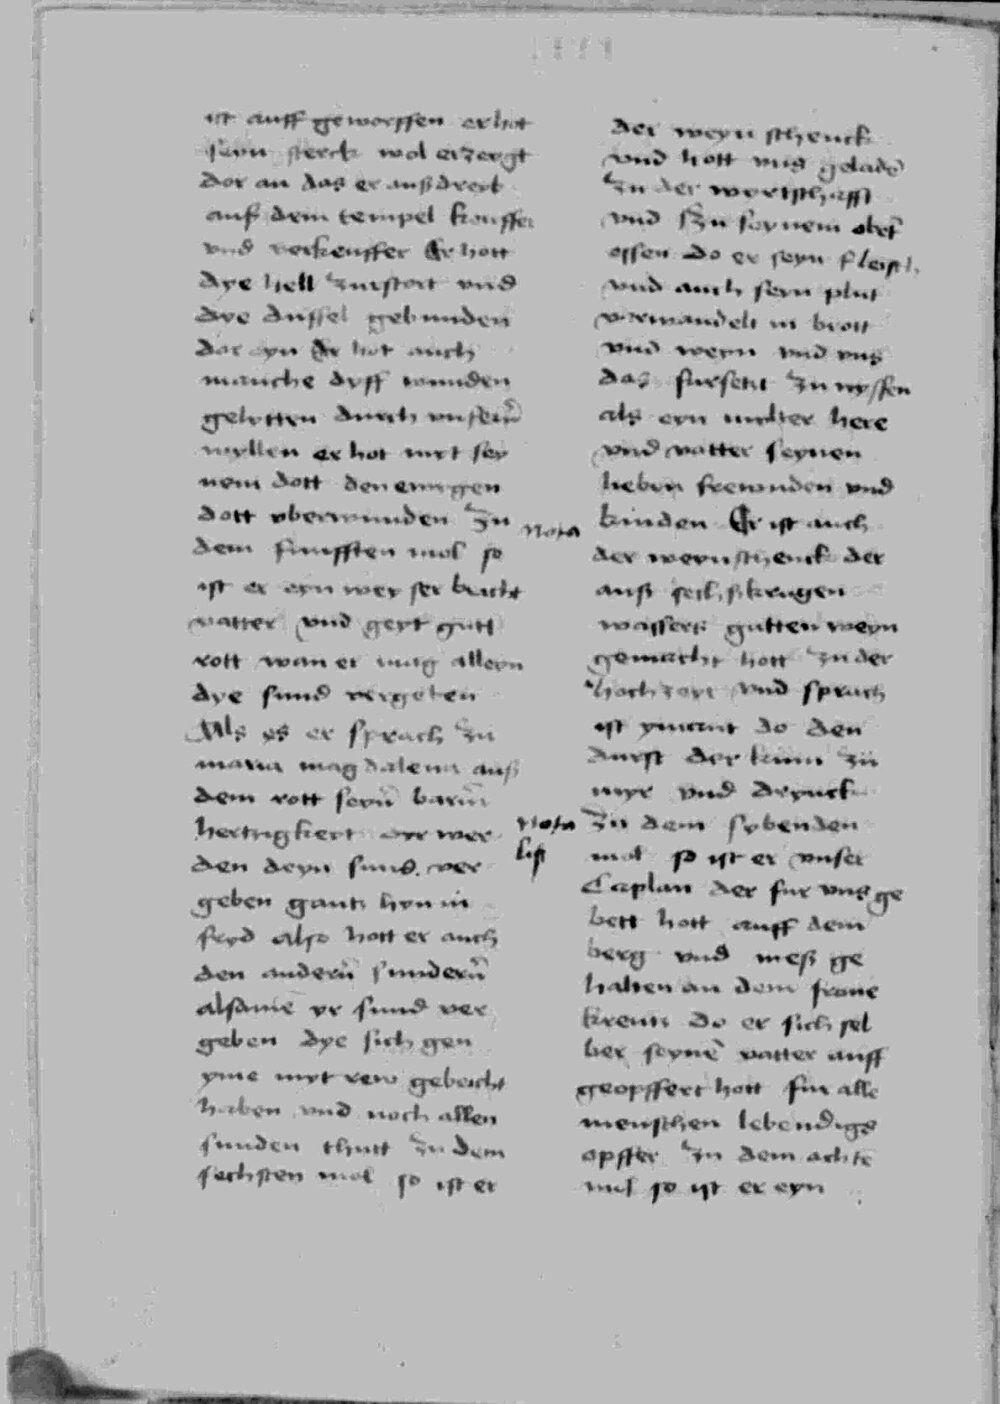 ist auff geworffen er hot
seyn sterck wol erzergt
dor an das er auß dreyb
auß dem tempel kouffer
vnd verkeuffer Er hott
dye hell zurstort vnd
dye duffel gebunden
dar eyn Er hot auch
manche dyff wunden
gelytten durch vnsern̄
wyllen er hot myt sey
nem dott den ewrgen
dott vberwunden zu
dem funfften mol so
ist er eyn weyser beicht
vatter vnd geyt gutt
rott wan er mag alleyn
dye sund vergeben
Als es er sprach zu
maria magdalena auß
dem rott seyn̄ barm̄
hertzigkeyt dyr wer
den deyn sund ver
geben gantz hyn in
fryd also hott er auch
den andern̄ sundern̄
alsame yr sund ver
geben dye sich gen
yme myt rew gebeicht
haben vnd noch allen
sunden thutt zu dem
sechsten mol so ist er
Nota
Nota
list
der weyn schenck
vnd hott vns geladē
zu der wyrtschafft
vnd zu seynem obet
essen do er seyn fleisch
vnd auch seyn plut
verwandelt in brott
vnd weyn vnd vns
das fursetzt zu nyssen
als eyn mylter here
vnd vatter seynen
lieben frewnden vnd
kinden Er ist auch
der weynschenck der
auß sechs krugen
wassers gutten weyn
gemacht hott zu der
hochzeyt vnd sprach
ist ymant do den
durst der kum zu
myr vnd drynck
zu dem sybenden
mol so ist er vnser
Caplan der fur vns ge
bett hott auff dem
berg vnd meß ge
halten an dem frone
kreutz do er sich sel
ber seynē vatter auff
geopffert hott fur alle
menschen lebendigs
opffer zu dem achtē
mol so ist er eyn